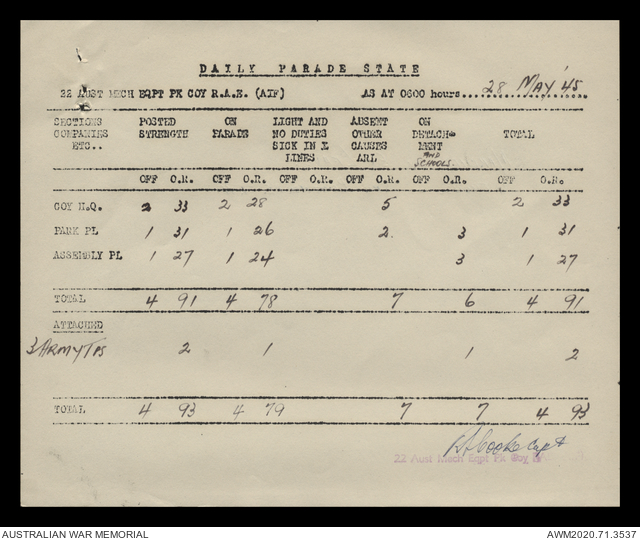 DAILY PARADE STATE
22 AUST MECH EQPT PK COY R.A.E. (AIF) AS AT 0600 hours..28 MAY '45
SECTIONS POSTED ON LIGHT AND ABSENT ON
COMPANIES STRENGTH PARADE NO DUTIES OTHER DETACH- TOTAL
ETC.. SICK IN X CAUSES MENT
LINES ARL AND SCHOOLS.
OFF O.R. OFF O.R. OFF O.R. OFF O.R. OFF O.R. OFF O.R.
COY H.Q. 2 33 2 28 5 2 33
PARK PL 1 31 1 26 2 3 1 31
ASSEMBLY PL 1 27 1 24 3 1 27
TOTAL 4 91 4 78 7 6 4 91
ATTACHED
3 ARMY TPS 2 1 1 2
TOTAL 4 93 4 79 7 7 4 93
Cooke Capt
22 Aust Mech Eqpt Pk Coy
AUSTRALIAN WAR MEMORIAL AWM2020.71.3537